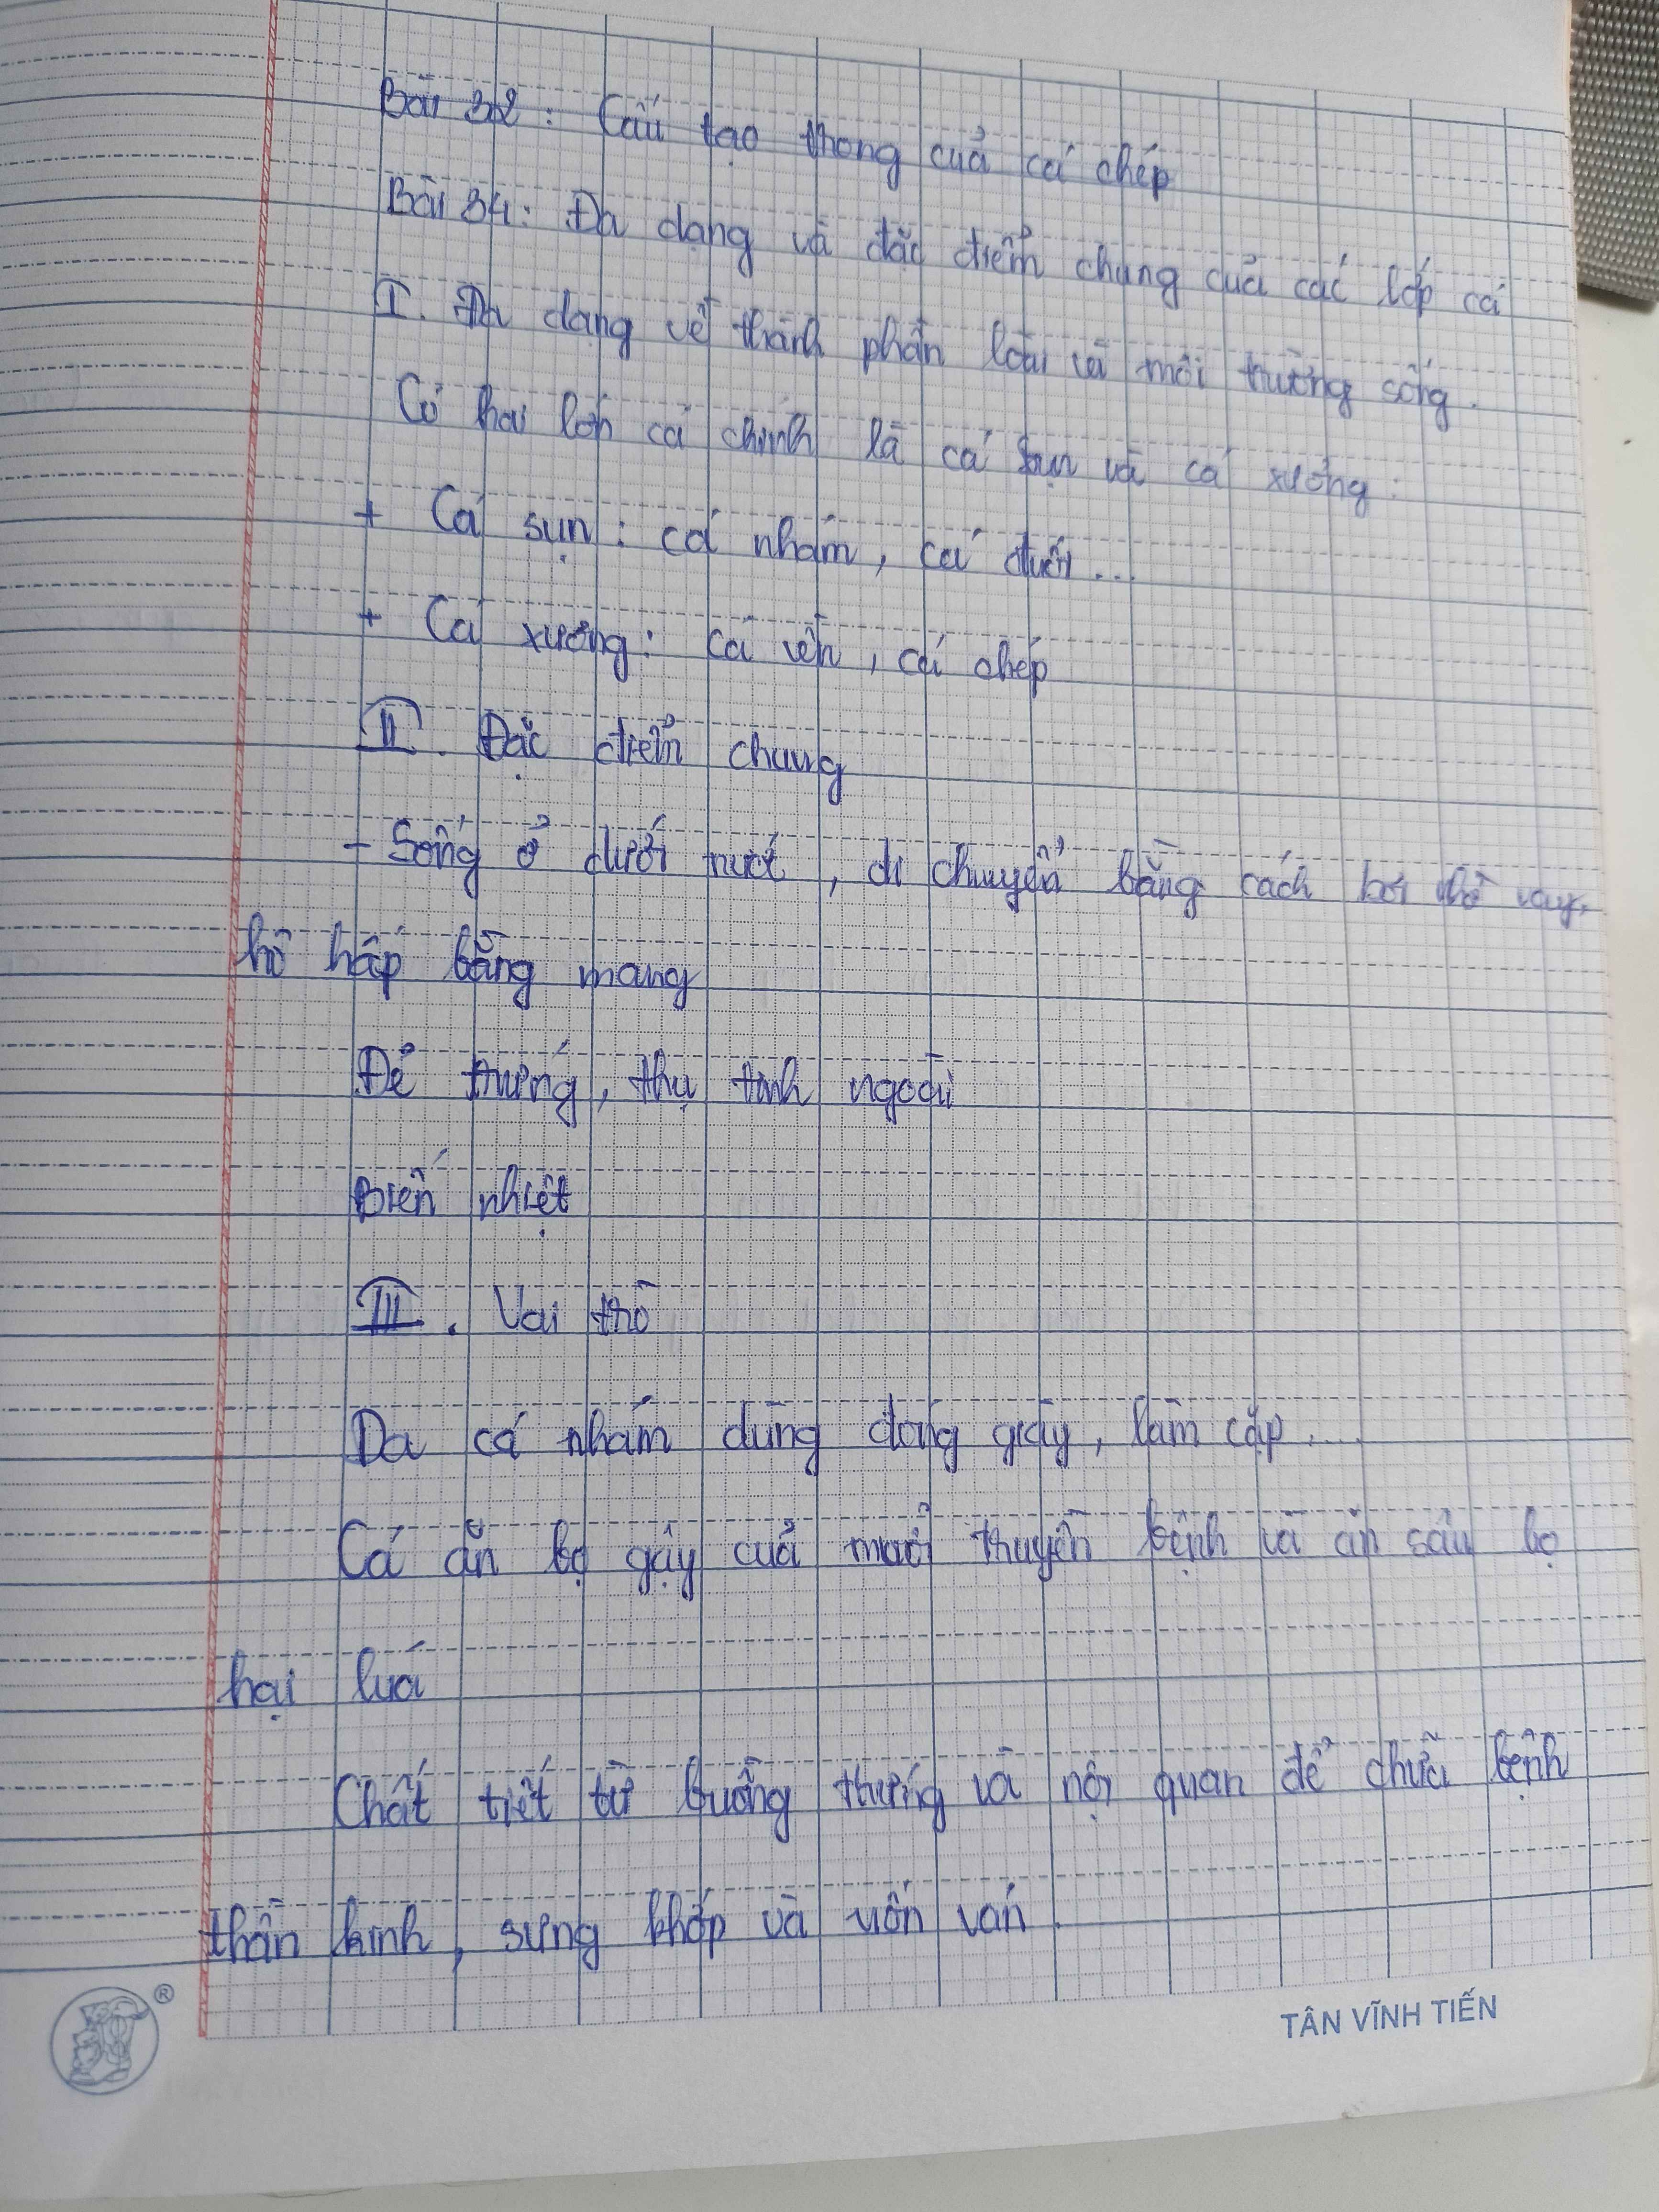 Bài 32: Cấu tạo trong của cá chép
Bài 34: Đa dạng và đặc điểm chung của các lớp cá
I. Đa dạng về thành phần loài và môi trường sống.
Có hai lớp cá chính là cá sụn và cá xương:
+ Cá sụn: cá nhám, cá đuối...
+ Cá xương: Cá vền, cá chép
II. Đặc điểm chung
- Sống ở dưới nước, di chuyển bằng cách bơi nhờ vay,
hô hấp bằng mang
Đẻ trứng, thụ tinh ngoài
Biến nhiệt
III. Vai trò
Da cá nhám dùng đóng giày, làm cặp....
Cá ăn bọ gậy của muỗi truyền bệnh và ăn sâu bọ
hại lúa
Chất tiết từ buồng trứng và nội quan để chữa bệnh
thần kinh, sưng khớp và uốn ván
®
TÂN VĨNH TIẾN